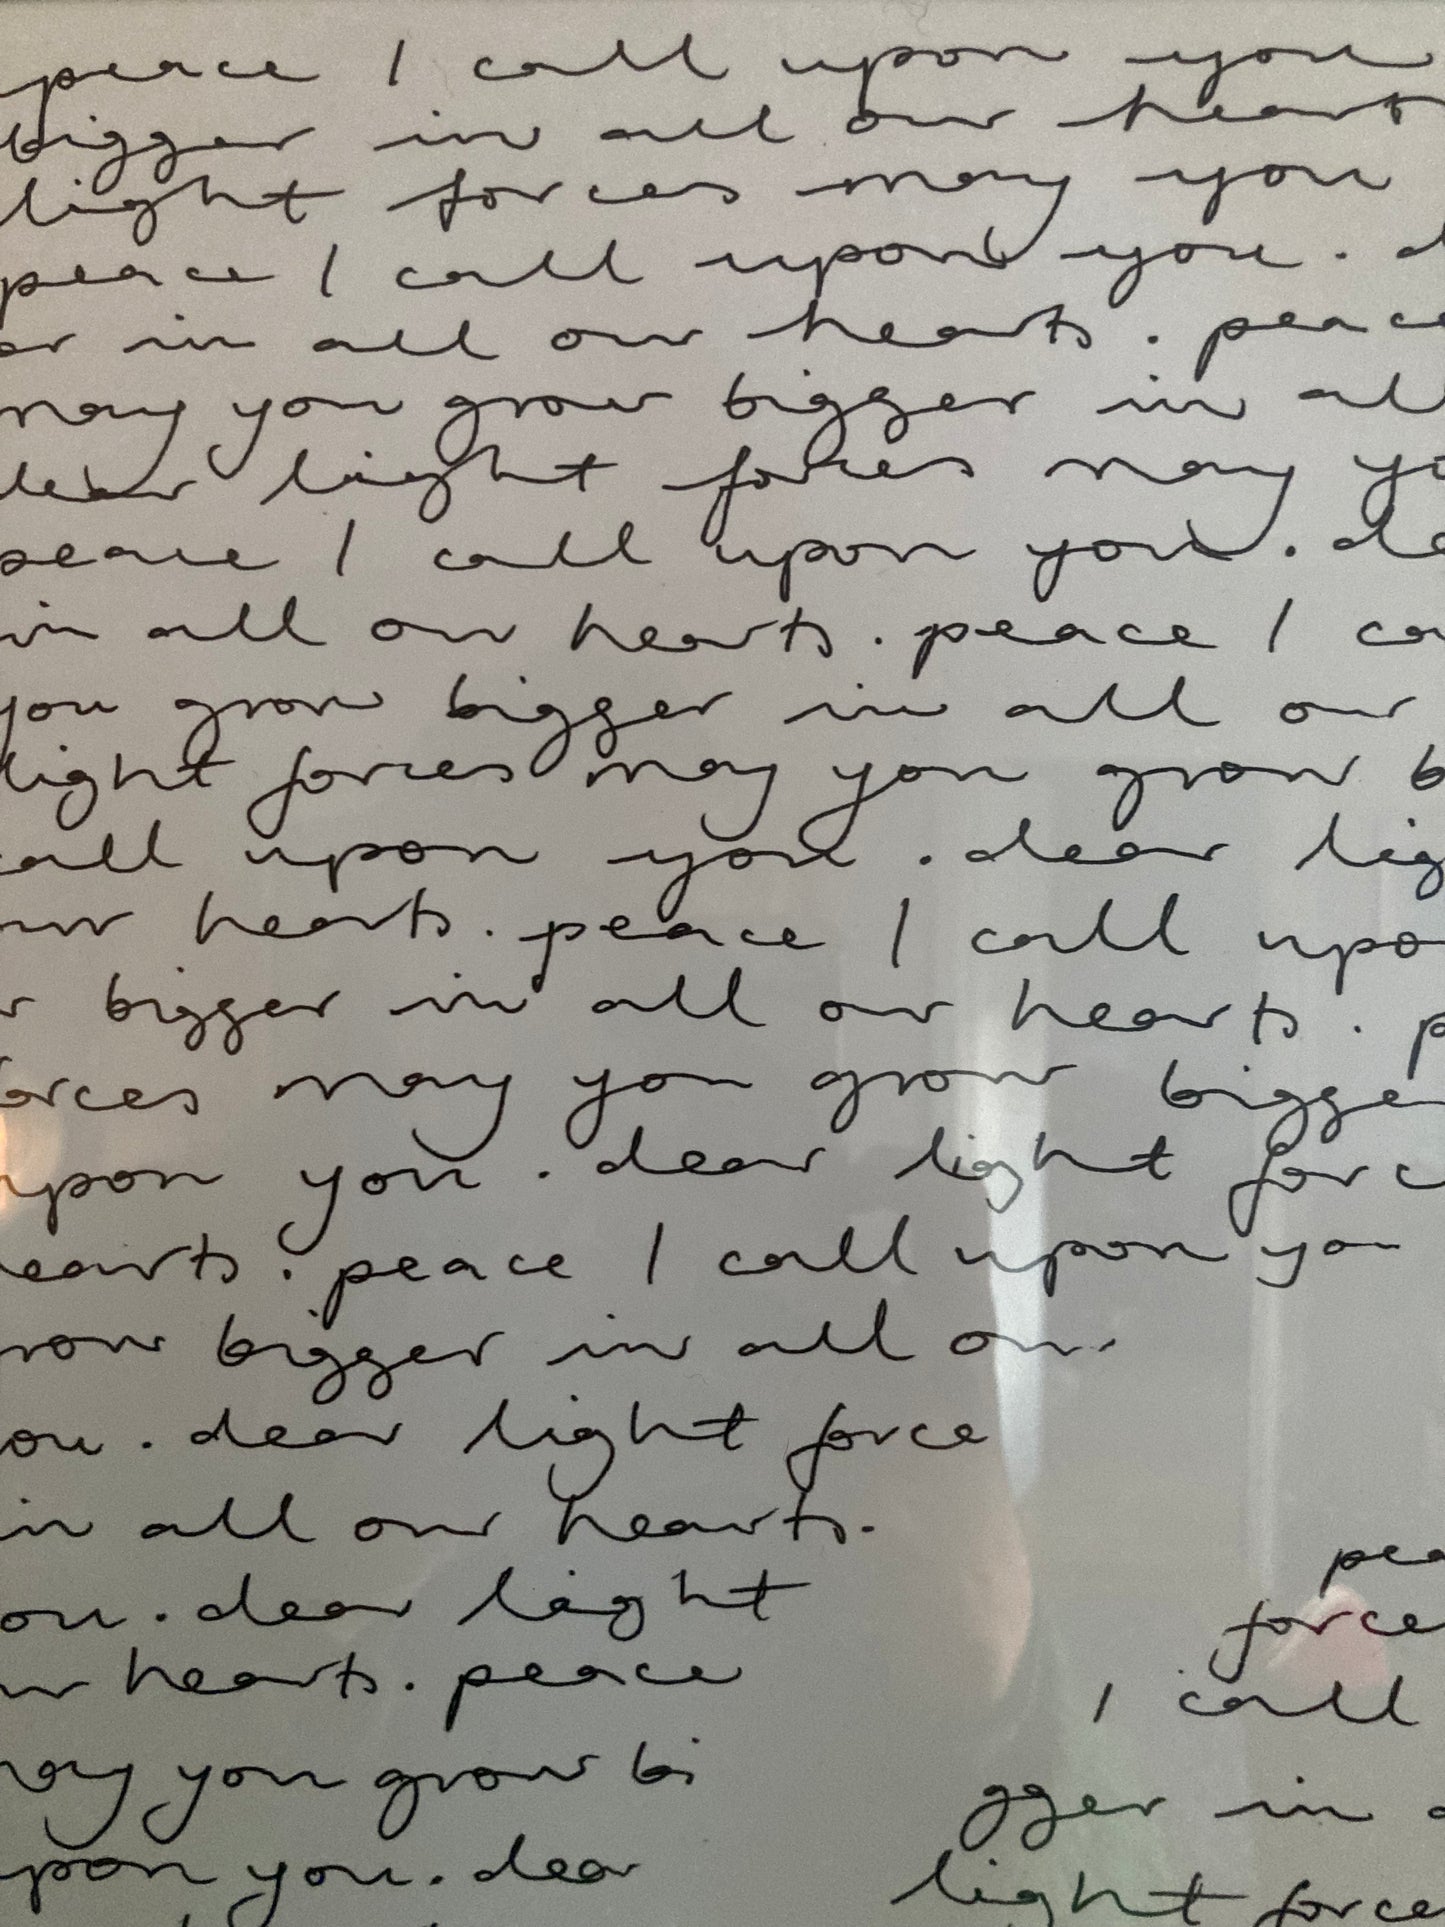 peace I call upon you
bigger in all our heart
light forces may you
peace I call upon you. d
er in all our hearts. peace
may you grow bigger in all
dear light forces may yo
peace I call upon you. de
in all our hearts. peace I ca
you grow bigger in all our
light forces may you grow b
call upon you. dear lig
our hearts. peace I call upo
r bigger in all our hearts. p
forces may you grow bigge
upon you. dear light forc
hearts. peace I call upon yo
row bigger in all ou
ou. dear light force
in all our hearts.
pea
ou. dear light
force
ur hearts. peace
I call
may you grow bi
gger in a
upon you. dear
light force